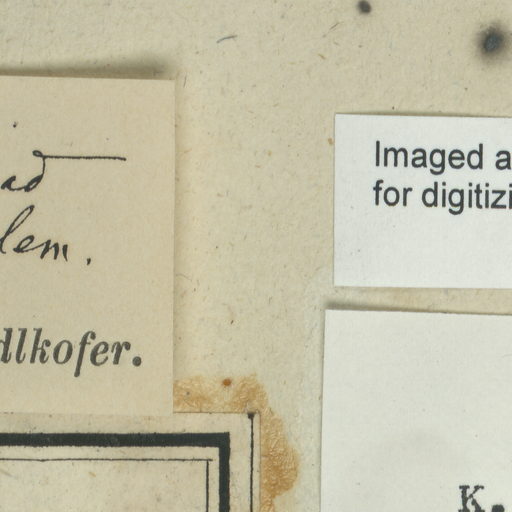 ad
lem.
dlkofer.
Imaged a
for digitizi
K.